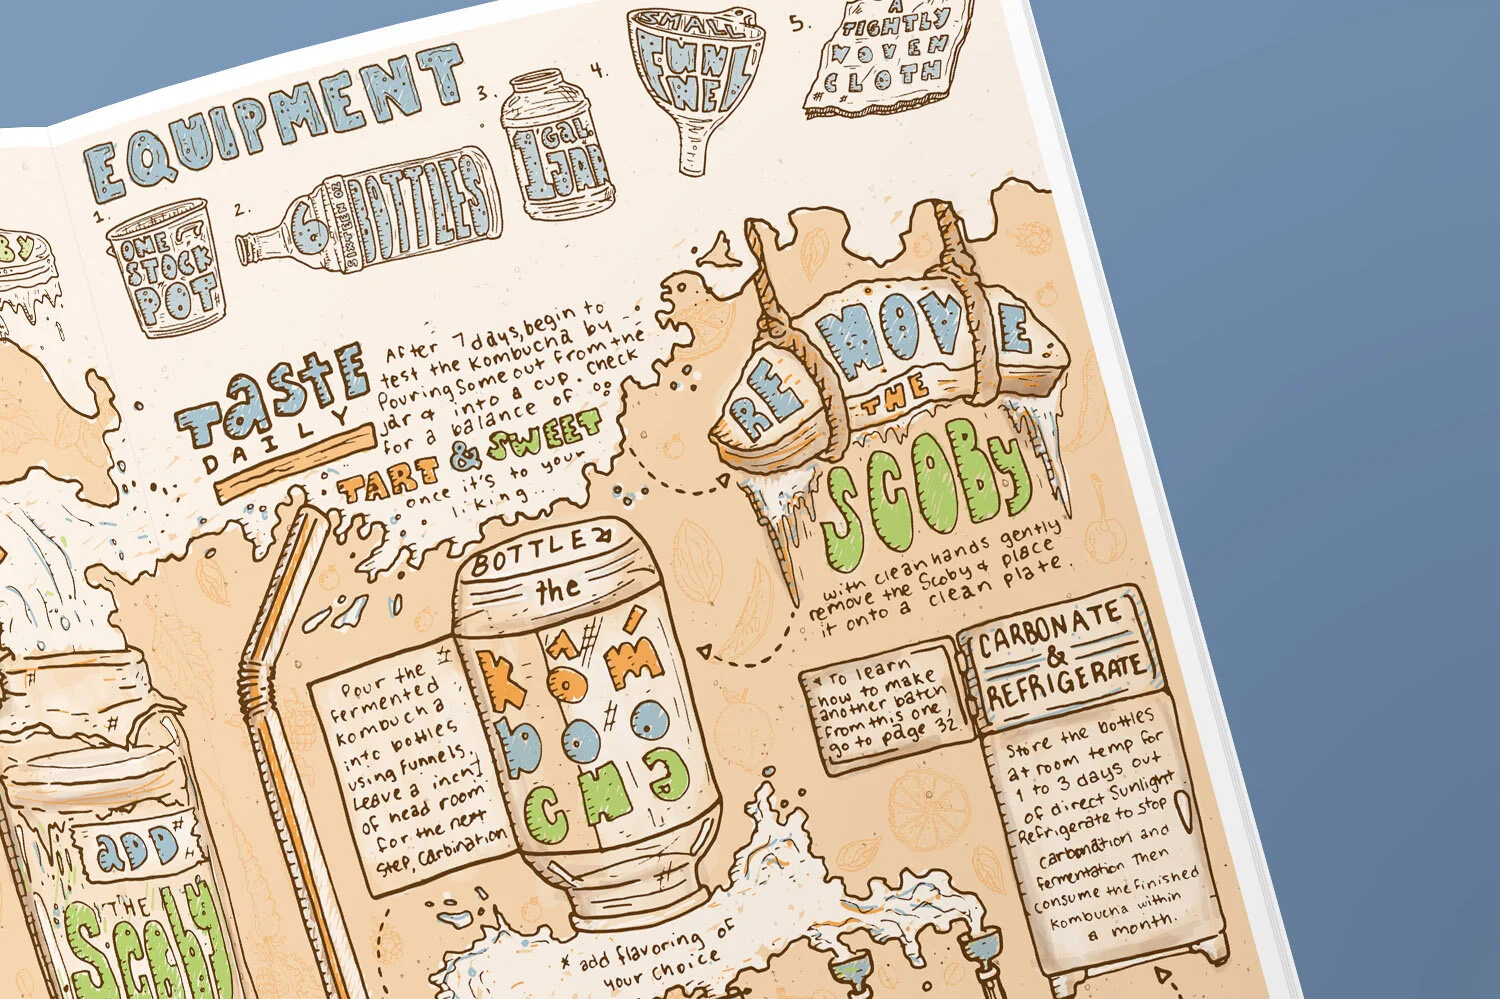 EQUIPMENT
1.
ONE
STOCK
POT
2.
6
SIXTEEN OZ
BOTTLES
3.
1 Gal.
JAR
4.
SMALL
FUN
NEL
5.
A
TIGHTLY
WOVEN
CLOTH
BY
TaSTE
DAILY
After 7 days, begin to
test the Kombucha by
Pouring some out from the
jar & into a cup. Check
for a balance of
TART & SWEET
once it's to your
liking...
REMOVE
THE
SCOBY
with clean hands gently
remove the Scoby & place
it onto a clean plate.
BOTTLE
the
KOM
boo
CHa
Pour the
fermented
Kombucha
into bottles
using funnels.
Leave a inch
of head room
for the next
step, Carbination
* To learn
how to make
another batch
from this one,
go to page 32
CARBONATE
&
REFRIGERATE
Store the bottles
at room temp for
1 to 3 days out
of direct Sunlight
Refrigerate to stop
carbonation and
fermentation Then
consume the finished
kombucha within
a month.
aDD
THE
Scoby
* add flavoring of
your choice